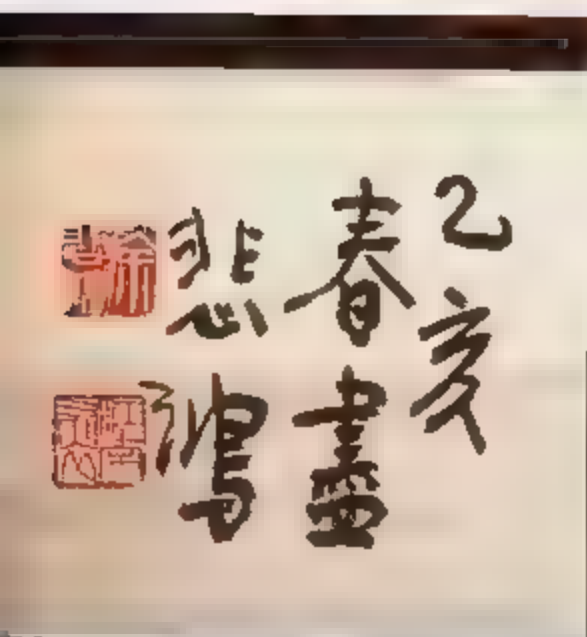 乙亥
春盡
悲鴻